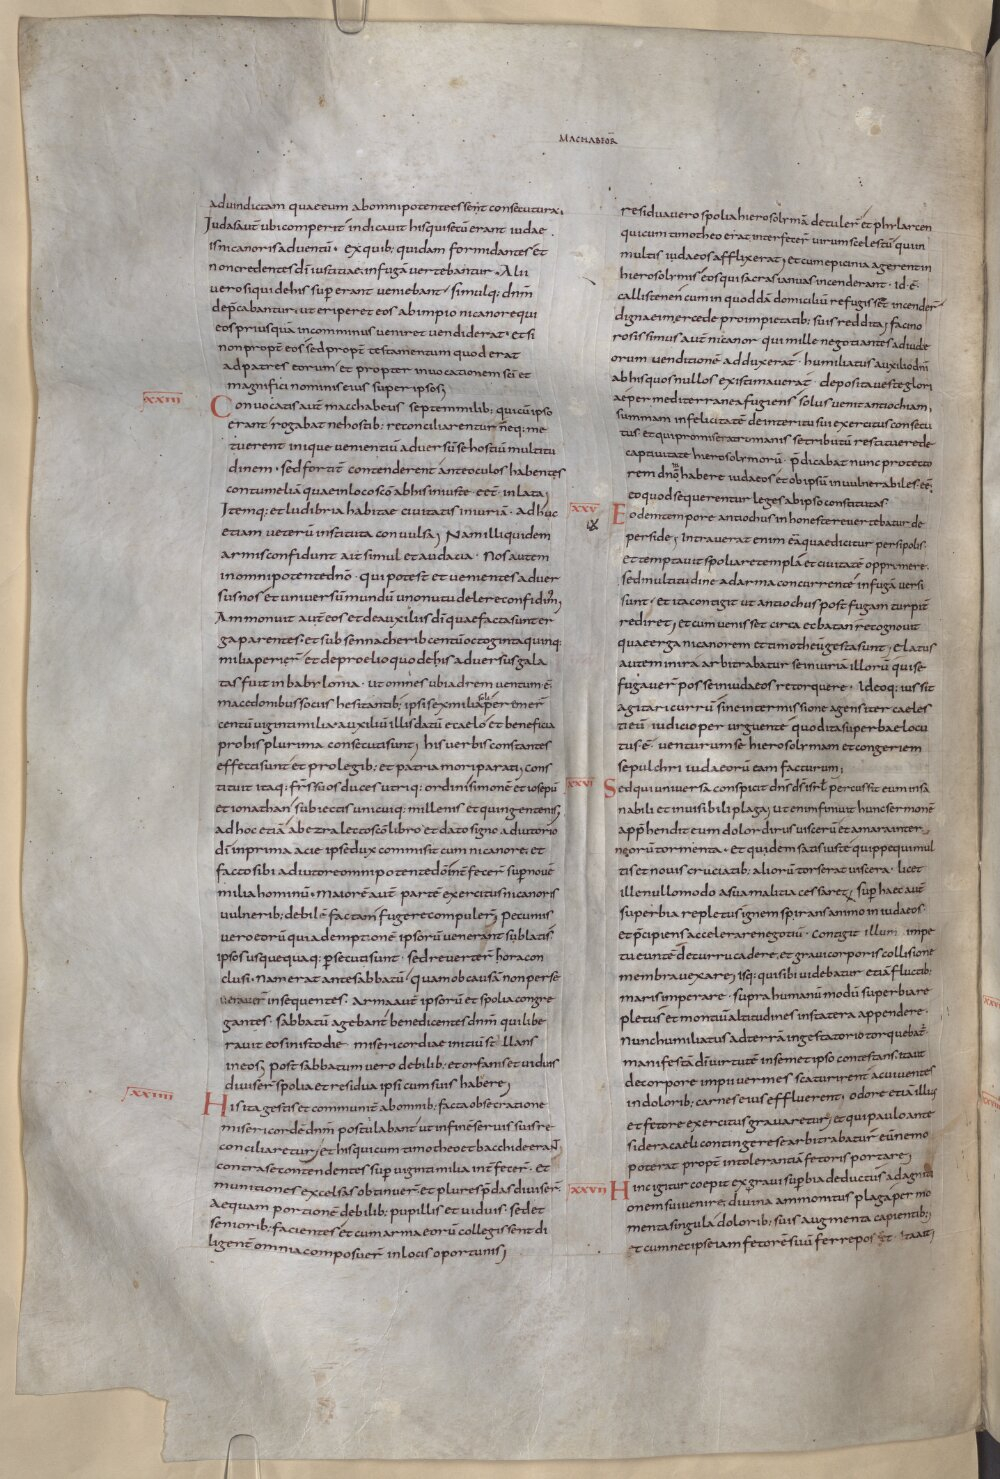 MACHABEOR̄
ad vindictam quae eum ab omnipotente esseńt consecutura.
Iudas aut̄ ubi comperit indicavit his qui secū erant iudae
is nicanoris adventū. ex quib; quidam formidantes et
non credentes dī iustitiae in fugā vertebantur. Alii
vero siqui de his sup erant veniebant simulq; dn̄m
dep̄cabantur. ut eriperet eos ab impio nicanore qui
eos prius quā in comminus veniret vendiderat. et si
non propt̄ eos sed propt̄ testamentum quod erat
ad patres eorum et propter invocationem sc̄i et
magnifici nominis eius super ipsos;
XXIII
Convocatis aut̄ macchabeus septem milib; qui cū ipso
erant rogabat ne hostib; reconciliarentur neq; me
tuerent inique venientiū adversū se hostiū multitu
dinem. sed fortit̄ contenderent ante oculos habentes
contumeliā quae in loco sc̄o ab his iniuste eēt inlata;
Itemq; et ludibria habitae civitatis iniuriā. adhuc
etiam veterū instituta convulsa; Nam illi quidem
armis confidunt ait simul et audacia. Nos autem
in omnipotente dn̄o. qui potest et venientes adver
sus nos et universū mundū uno nutu delere confidim̄;
Ammonuit aut̄ eos et de auxiliis dī quae facta sunt er
ga parentes. et sub sennacherib centū octoginta quinq;
milia perier̄ et de proelio quod eis adversus gala
tas fuit in babylonia. ut omnes ubi ad rem ventum ē
macedonibus sociis hesitantib; ipsi sex milia soli peremer̄
centū viginti milia auxiliū illis datū e caelo et beneficia
pro his plurima consecuti sunt; his verbis constantes
effecti sunt et pro legib; et patria mori parati; cons
tituit itaq; fr̄s suos duces utriq; ordini simonē et iosepū
et ionathan subiectis unicuiq; millenis et quingentenis;
ad hoc etiā ab ezra lecto sc̄o libro et dato signo adiutorio
dī in prima acie ipse dux commisit cum nicanore; et
facto sibi adiutore omnipotente dō int̄fecer̄ sup novē
milia hominū. maiorē aut̄ partē exercitus nicanoris
vulnerib; debilē factam fugere compuler̄; Pecuniis
vero eorū qui ad emptionē ipsorū venerant sublatis
ipsos usquequaq; p̄secuti sunt. sed reverter̄ hora con
clusi. nam erat ante sabbatū quam ob causā non perse
veraver̄ insequentes. Arma aut̄ ipsorū et spolia congre
gantes. sabbatū agebant benedicentes dn̄m qui libe
ravit eos in isto die misericordiae initiū stillans
in eos; post sabbatum vero debilib; et orfanis et viduis
diviser̄ spolia et residua ipsi cum suis habere;
XXIIII
His ita gestis et communit̄ ab omnib; facta obsecratione
misericordē dn̄m postulabant ut in finē servis suis re
conciliaretur; et his qui cum timotheo et bacchide erant
contra se contendentes sup viginti milia int̄fecer̄. et
munitiones excelsas obtinuer̄ et plures p̄das diviser̄.
aequam portionē debilib; pupillis et viduis. sed et
seniorib; facientes et cum arma eorū collegissent di
ligent̄ omnia composuer̄ in locis oportunis;
residua vero spolia hierosolymā detuler̄ et phylarcen
qui cum timotheo erat interfecer̄ virum scelestū qui in
multis iudaeos afflixerat; et cum epinicia agerent in
hierosolymis eos qui sacras ianuas incenderant. id ē
callistenen cum in quoddā domiciliū refugisset incender̄
digna ei mercede pro impietatib; suis reddita; facino
rosissimus aut̄ nicanor qui mille negotiantes ad iude
orum venditionē adduxerat. humiliatus auxilio dn̄i
ab his quos nullos existimaverat. deposita veste glori
ae per mediterranea fugiens solus venit antiochiam,
summam infelicitatē de interitu sui exercitus consecu
tus. et qui promiserat romanis se tributū restituere de
captivitate hierosolymorū. p̄dicabat nunc protecto
rem dn̄m habere iudaeos et ob ipsū invulnerabiles eē.
eo quod sequerentur leges ab ipso constitutas.
XXV
IX
Eodem tempore antiochus inhoneste revertebatur de
perside; Intraverat enim eā quae dicitur persipolis.
et temptavit spoliare templū et civitatē opprimere.
sed multitudine ad arma concurrente in fugā versi
sunt. et ita contigit ut antiochus post fugam turpit̄
rediret; et cum venisset circa ecbatan recognovit
quae erga nicanorem et timotheū gesta sunt; Elatus
autem in ira arbitrabatur se iniuriā illorū qui se
fugaver̄ posse in iudaeos retorquere. Ideoq; iussit
agitari currū sine intermissione agens iter caeles
ti eū iudicio perurguente quod ita superbae locu
tus ē venturum se hierosolymam et congeriem
sepulchri iudaeorū eam facturum;
XXVI
Sed qui universa conspicit dn̄s dē isrl̄ percussit eum insa
nabili et invisibili plaga; ut enim finivit hunc sermonē
app̄hendit eum dolor dirus viscerū et amara inter
neorū tormenta. et quidem satis iuste quippe qui mul
tis et novis cruciatib; aliorū torserat viscera. licet
ille nullomodo a sua malitia cessaret; sup haec aut̄
superbia repletus ignem spirans animo in iudaeos
et p̄cipiens accelerare negotiū. contigit illum impe
tu euntē de curru cadere. et gravi corporis collisione
membra vexare; isq; qui sibi videbatur etiā fluctib;
maris imperare. supra humanū modū superbia re
pletus et montiū altitudines in statera appendere.
Nunc humiliatus ad terrā in gestatorio torquebat̄.
manifestā dī virtutē in semet ipso contestans. ita ut
de corpore impii vermes scaturirent ac viventes
in dolorib; carnes eius effluerent; odore etiā illius
et fetore exercitus gravaretur; et qui paulo ante
sidera caeli contingere se arbitrabatur eū nemo
poterat propt̄ intolerantiā fetoris portare;
XXVII
Hinc igitur coepit ex gravi sup̄bia deductus ad agniti
onem sui venire; divina ammonitus plaga per mo
menta singula dolorib; suis augmenta capientib;;
et cum net ipse iam fetorē suū ferre posset. Ita ait;